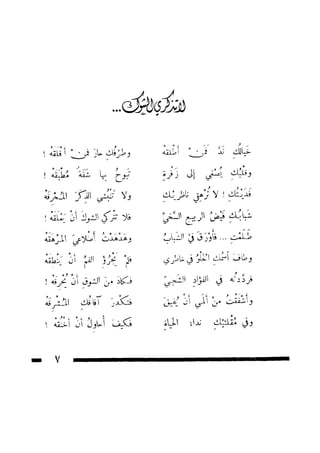 لا تذكري الشوك ...
خيالك ندّ فمن أطلقه وطرفك حار فمن أقلقه !
وقلبك يصغي إلى زفرة تبوح بها شفة مطبقه !
فديتك ! لا ترهقي ناظريك ولا تنبشي الذكر المحرقه
شبابك فيض الربيع السخيّ فلا تتركي الشوك أن يعلقه !
طلعت ... فأورق فيّ الشباب وهدهدت أضلاعي المرهقه
وطاف اسمك الحلو في خاطري فلم يجرؤ الفم أن ينطقه
فردّدته في الفؤاد الشجيّ فكاد من الشوق أن يحرقه !
وأشفقت من ألمي أن يفيق فتكدر آفاقك المشرقه
وفي مقلتيك نداء الحياة فكيف أحاول أن أخنقه !
٧